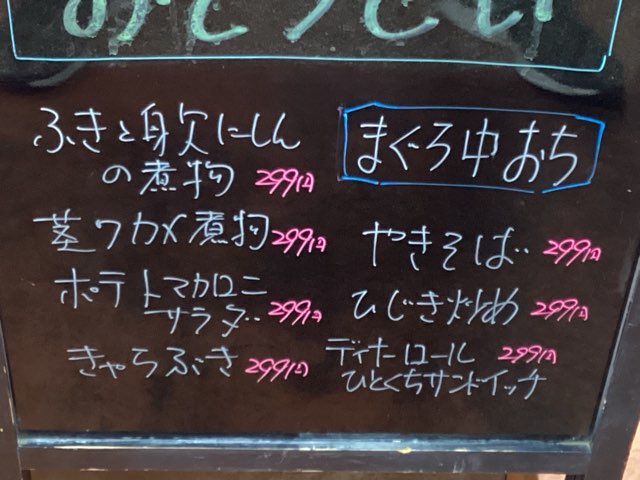 おそうざい
ふきと身欠にしん
の煮物 299円
茎ワカメ煮物 299円
ポテトマカロニ
サラダ 299円
きゃらぶき 299円
まぐろ中おち
やきそば 299円
ひじき炒め 299円
ディナーロール 299円
ひとくちサンドイッチ